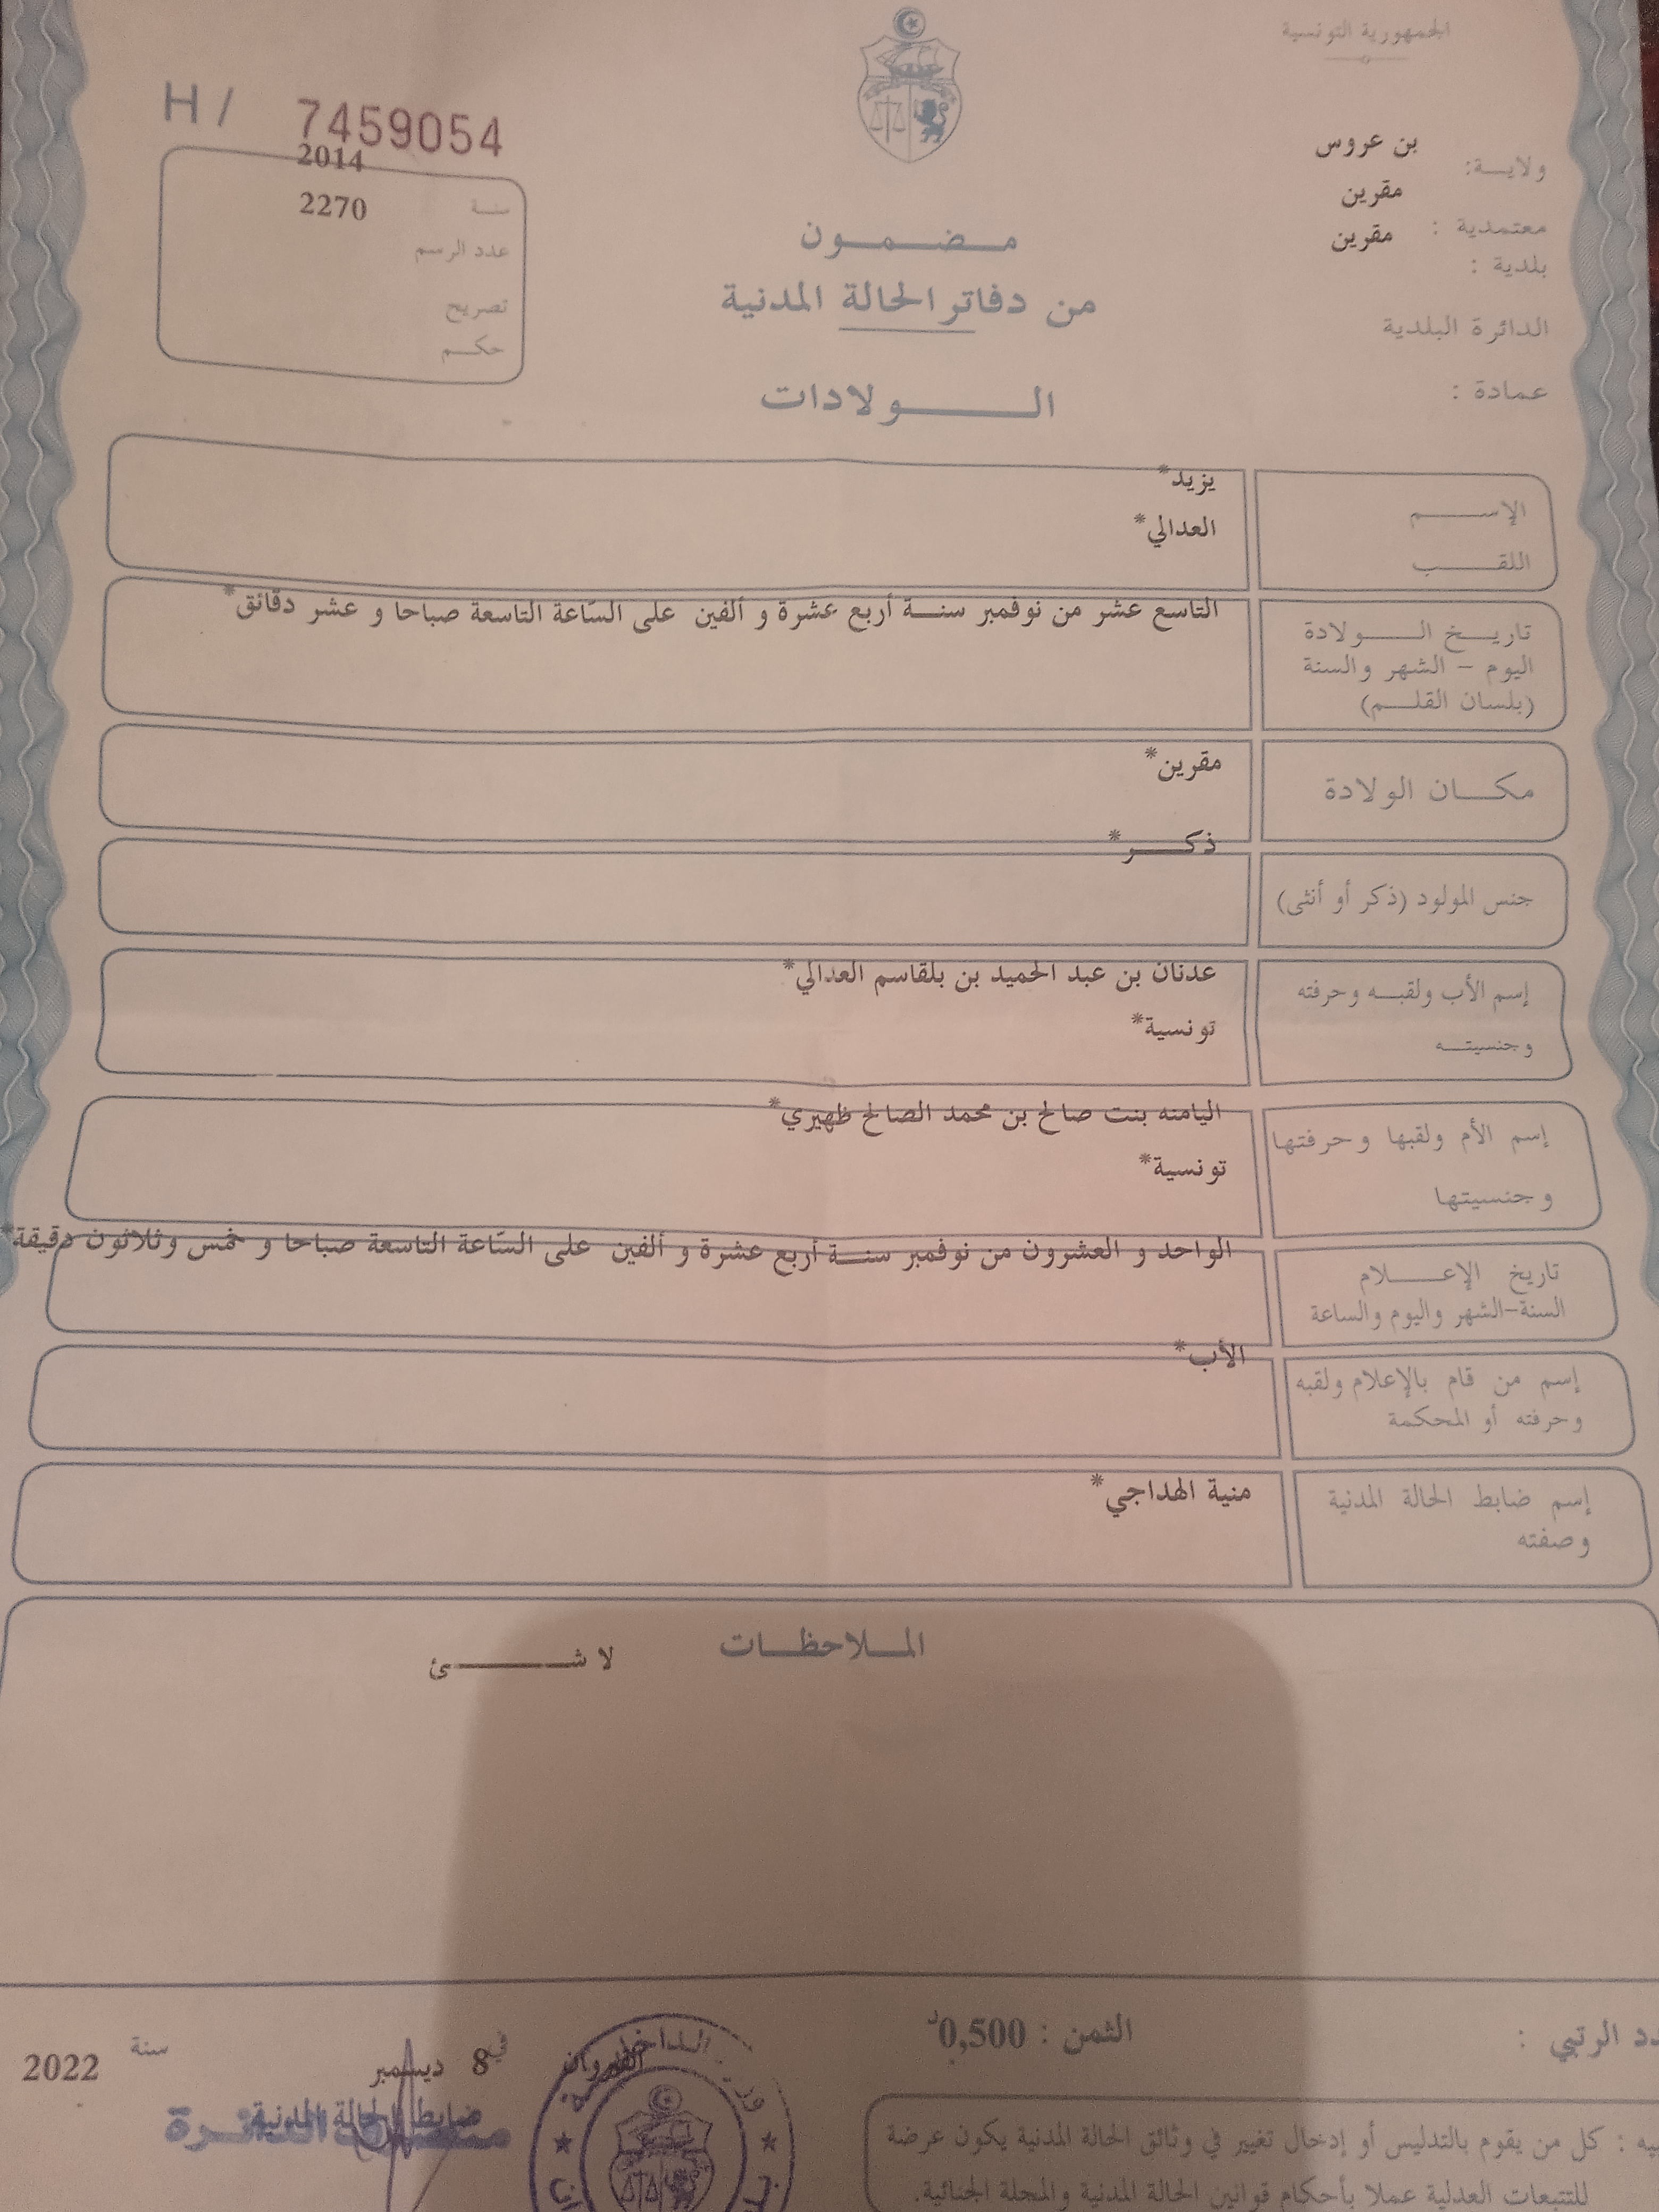 الجمهورية التونسية
H / 7459054
ولايــة: بن عروس
معتمدية : مقرين
بلدية : مقرين
الدائرة البلدية
عمادة :
2014
سنة 2270
عدد الرسم
تصريح
حكم
مضمون
من دفاتر الحالة المدنية
الولادات
الإسم يزيد*
اللقب العدالي*
تاريخ الولادة
اليوم - الشهر والسنة
(بلسان القلم)
التاسع عشر من نوفمبر سنة أربع عشرة و ألفين على السّاعة التاسعة صباحا و عشر دقائق*
مكان الولادة مقرين*
جنس المولود (ذكر أو أنثى) ذكر*
إسم الأب ولقبه وحرفته عدنان بن عبد الحميد بن بلقاسم العدالي*
وجنسيته تونسية*
إسم الأم ولقبها وحرفتها اليامنه بنت صالح بن محمد الصالح ظهيري*
وجنسيتها تونسية*
تاريخ الإعلام
السنة-الشهر واليوم والساعة
الواحد و العشرون من نوفمبر سنة أربع عشرة و ألفين على السّاعة التاسعة صباحا و خمس وثلاثون دقيقة*
إسم من قام بالإعلام ولقبه الأب*
وحرفته أو المحكمة
إسم ضابط الحالة المدنية منية الهداجي*
وصفته
الملاحظات
لا شئ
الرتبي :
الثمن : 0,500د
القيروان في 8 ديسمبر سنة 2022
ضابط الحالة المدنية
كل من يقوم بالتدليس أو إدخال تغيير في وثائق الحالة المدنية يكون عرضة
للتتبعات العدلية عملا بأحكام قوانين الحالة المدنية والمجلة الجنائية.